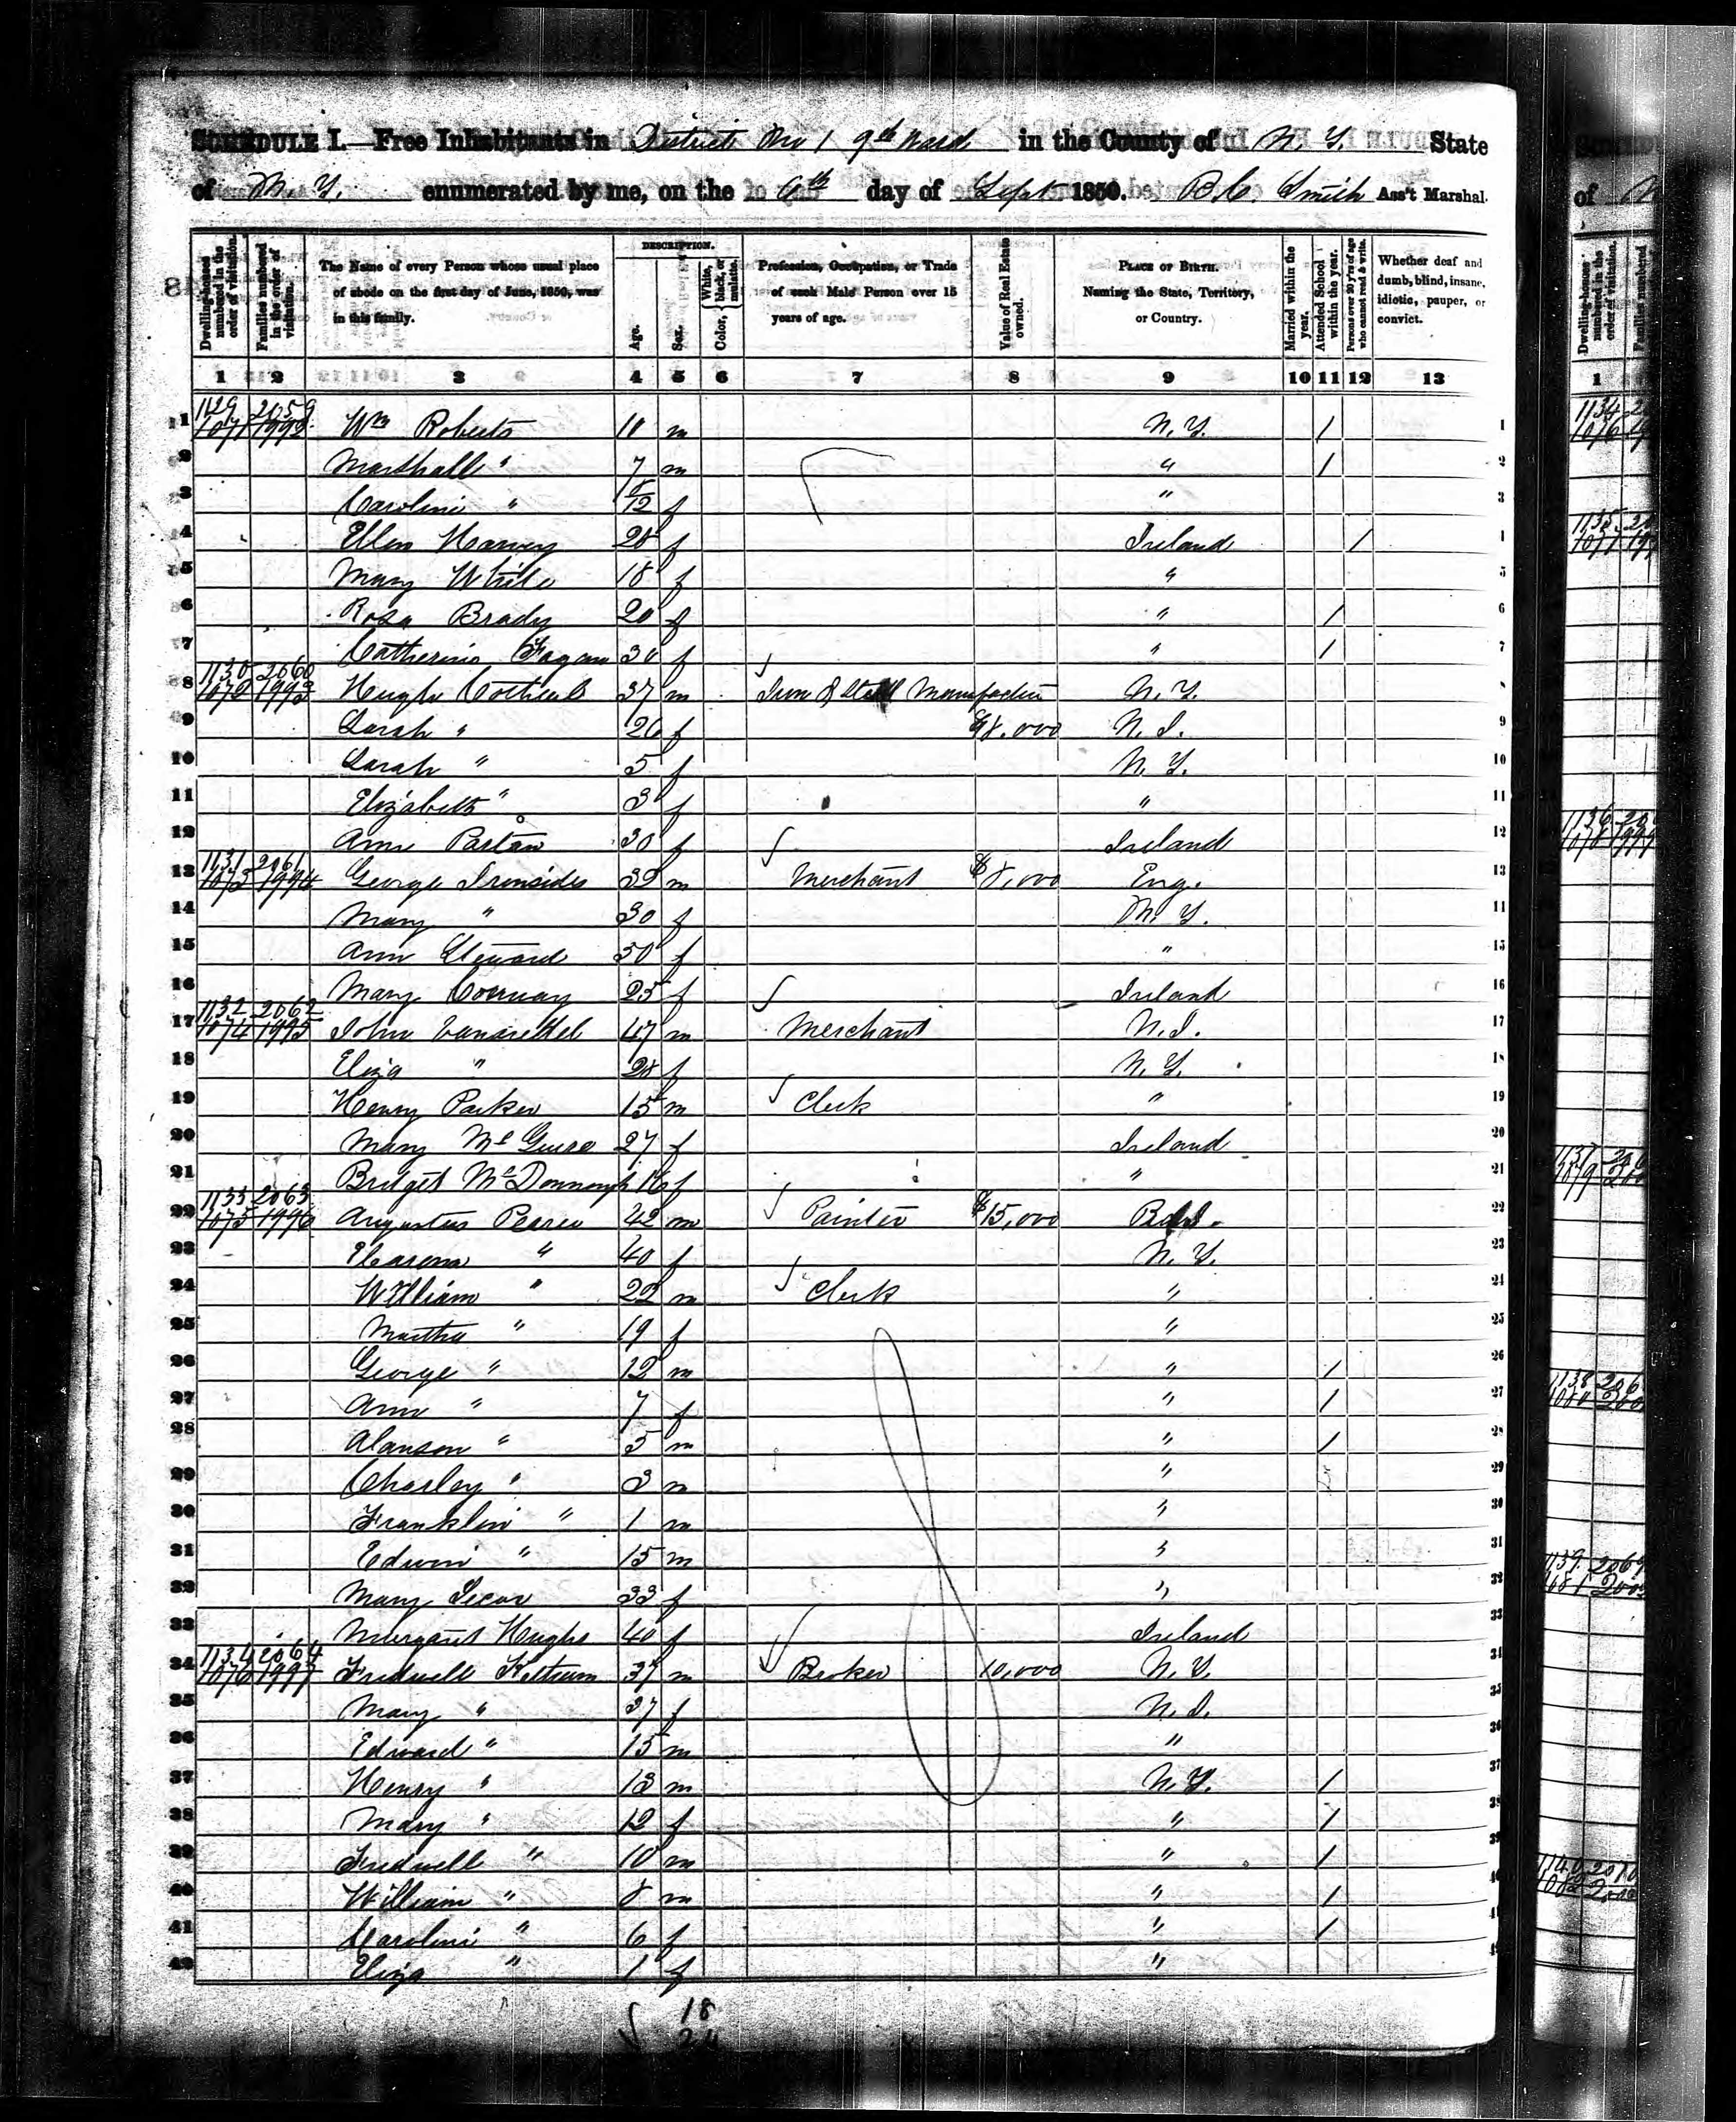 SCHEDULE I.—Free Inhabitants in District No 1 9th Ward in the County of N. Y. State
of N. Y. enumerated by me, on the 6th day of Sept 1850. B. C. Smith Ass't Marshal.
Dwelling-houses numbered in the order of visitation. Families numbered in the order of visitation. The Name of every Person whose usual place of abode on the first day of June, 1850, was in this family. DESCRIPTION. Age. Sex. Color, White, black, or mulatto. Profession, Occupation, or Trade of each Male Person over 15 years of age. Value of Real Estate owned. PLACE OF BIRTH. Naming the State, Territory, or Country. Married within the year. Attended School within the year. Persons over 20 y'rs of age who cannot read & write. Whether deaf and dumb, blind, insane, idiotic, pauper, or convict.
1 2 3 4 5 6 7 8 9 10 11 12 13
1129 2059
1 1071 1992 Wm Roberts 10 m N. Y. / 1
2 Marshall " 7 m " / 2
3 Caroline " /12 f " 3
4 Ellen Harvey 28 f Ireland /
5 Mary White 18 f " 5
6 Rosa Brady 20 f " / 6
7 Catherine Fagan 30 f " / 7
1130 2060
8 1072 1993 Hugh 37 m Iron & Steel Manufactur N. Y. 8
9 Sarah " 26 f N. J. 9
10 Sarah " 5 f N. Y. 10
11 Elizabeth " 3 f " 11
12 Ann 30 f Ireland 12
1131 2061
13 1073 1994 George Ironsides 39 m Merchant $8,000 Eng. 13
14 Mary " 30 f N. Y.
15 Ann Steward 50 f " 15
16 Mary 25 f Ireland 16
1132 2062
17 1074 1995 John 47 m Merchant N. J. 17
18 Eliza " 28 f N. Y. 18
19 Henry Parker 15 m Clerk " 19
20 Mary McGuire 27 f Ireland 20
21 Bridget McDonnough 16 f " 21
1133 2063
22 1075 1996 Augustus Pearce 42 m Painter $15,000 22
23 " 40 f N. Y. 23
24 William " 22 m Clerk " 24
25 Martha " 19 f " 25
26 George " 12 m " / 26
27 Ann " 7 f " / 27
28 Alanson " 5 m " / 28
29 Charley " 3 m " 29
30 Franklin " 1 m " 30
31 Edwin " 15 m " 31
32 Mary Secor 33 f " 32
33 Margaret Hughs 40 f Ireland 33
1134 2064
34 1076 1997 Fredwell Ketchum 37 m Broker 10,000 N. Y. 34
35 Mary " 37 f N. J. 35
36 Edward " 15 m " 36
37 Henry " 13 m N. Y. / 37
38 Mary " 12 f " / 38
39 Fredwell " 10 m " / 39
40 William " 8 m " / 40
41 Caroline " 6 f " / 41
42 Eliza " 1 f " 42
18
24